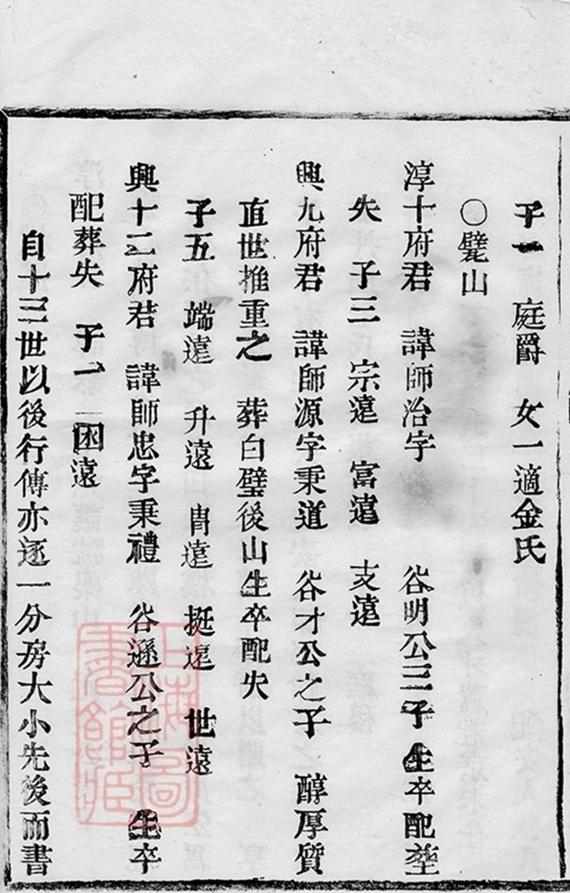 子一 庭爵 女一適金氏
○甓山
淳十府君 諱師治字 谷明公三子生卒配塟
失 子三 宗遠 富遠 支遠
興九府君 諱師源字秉道 谷才公之子 醇厚質
直世推重之 葬白璧後山生卒配失
子五 端遠 升遠 遠 挺遠 世遠
興十二府君 諱師忠字秉禮 谷遜公之子 生卒
配葬失 子一 遠
自十三世以後行傳亦逐一分房大小先後而書
上海圖書館藏